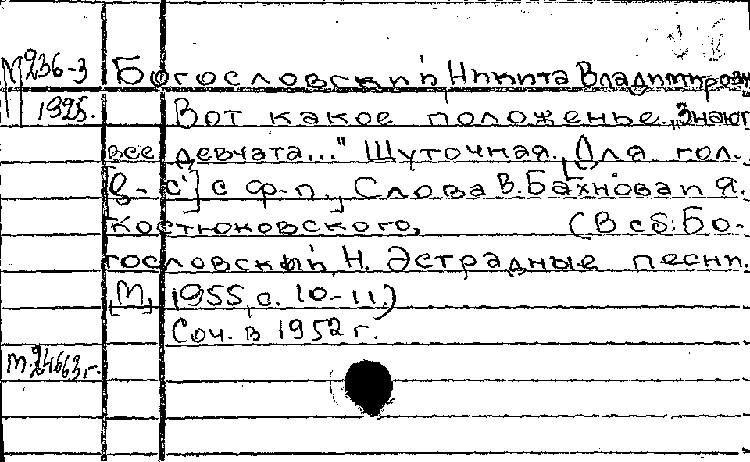 М 236-3 Богословский Никита Владимирович
1925. Вот какое положенье. „Знают
все девчата..." Шуточная. Для гол.
[в - с'] с ф-п., Слова В. Бахнова и Я.
Костюковского. (В сб: Бо-
гословский, Н. Эстрадные песни.
[М], 1955, с. 10-11.)
Соч. в 1952 г.